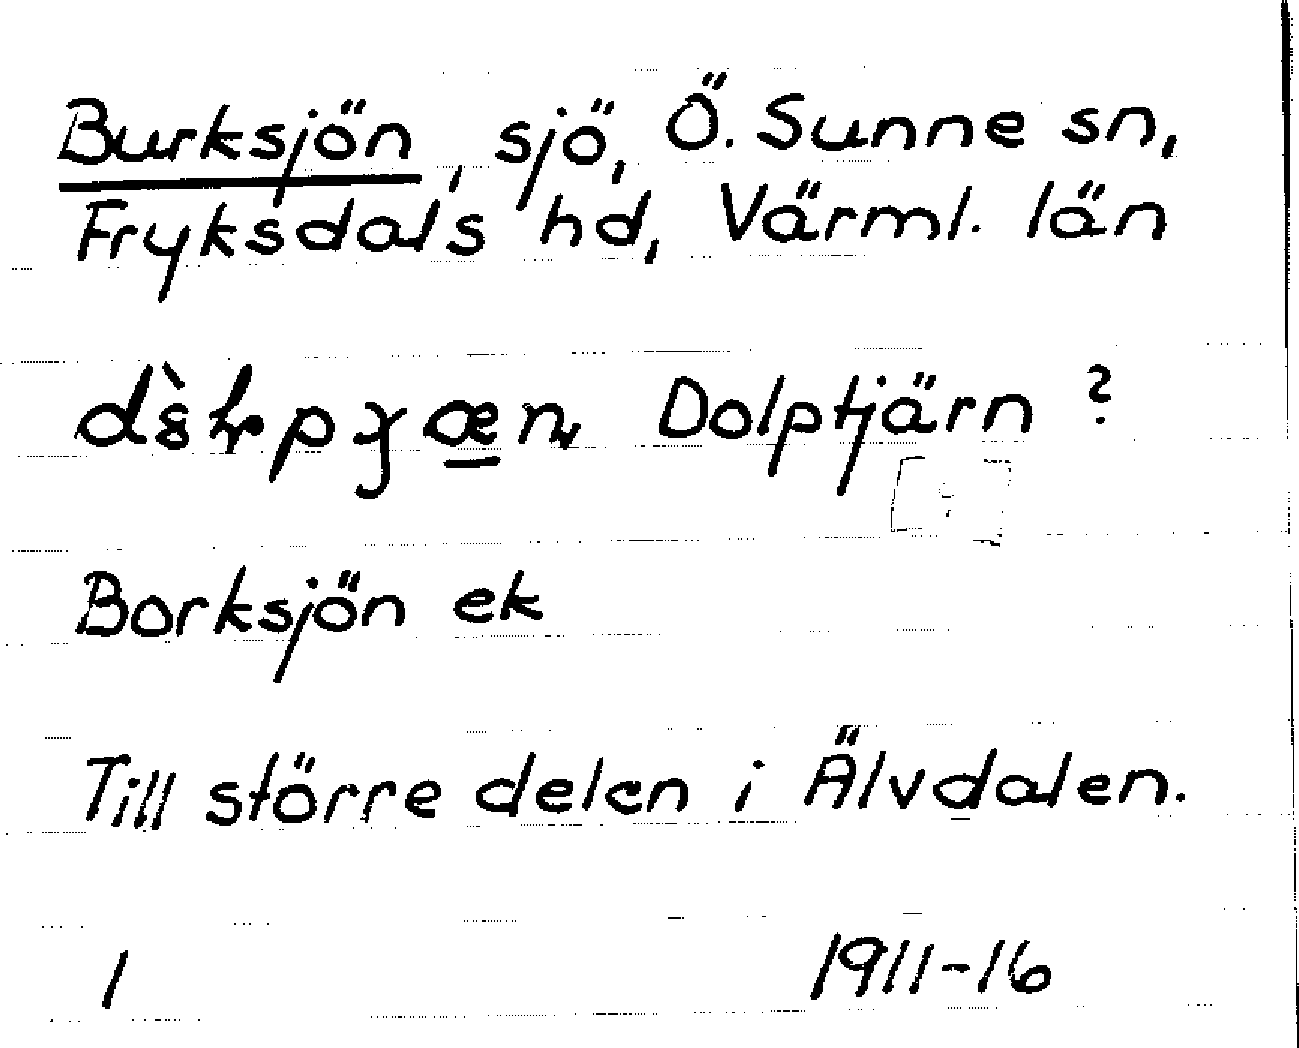 Burksjön, sjö, Ö. Sunne sn,
Fryksdals hd, Värml. län
Dolptjärn ?
Borksjön ek
Till större delen i Älvdalen.
1 1911-16